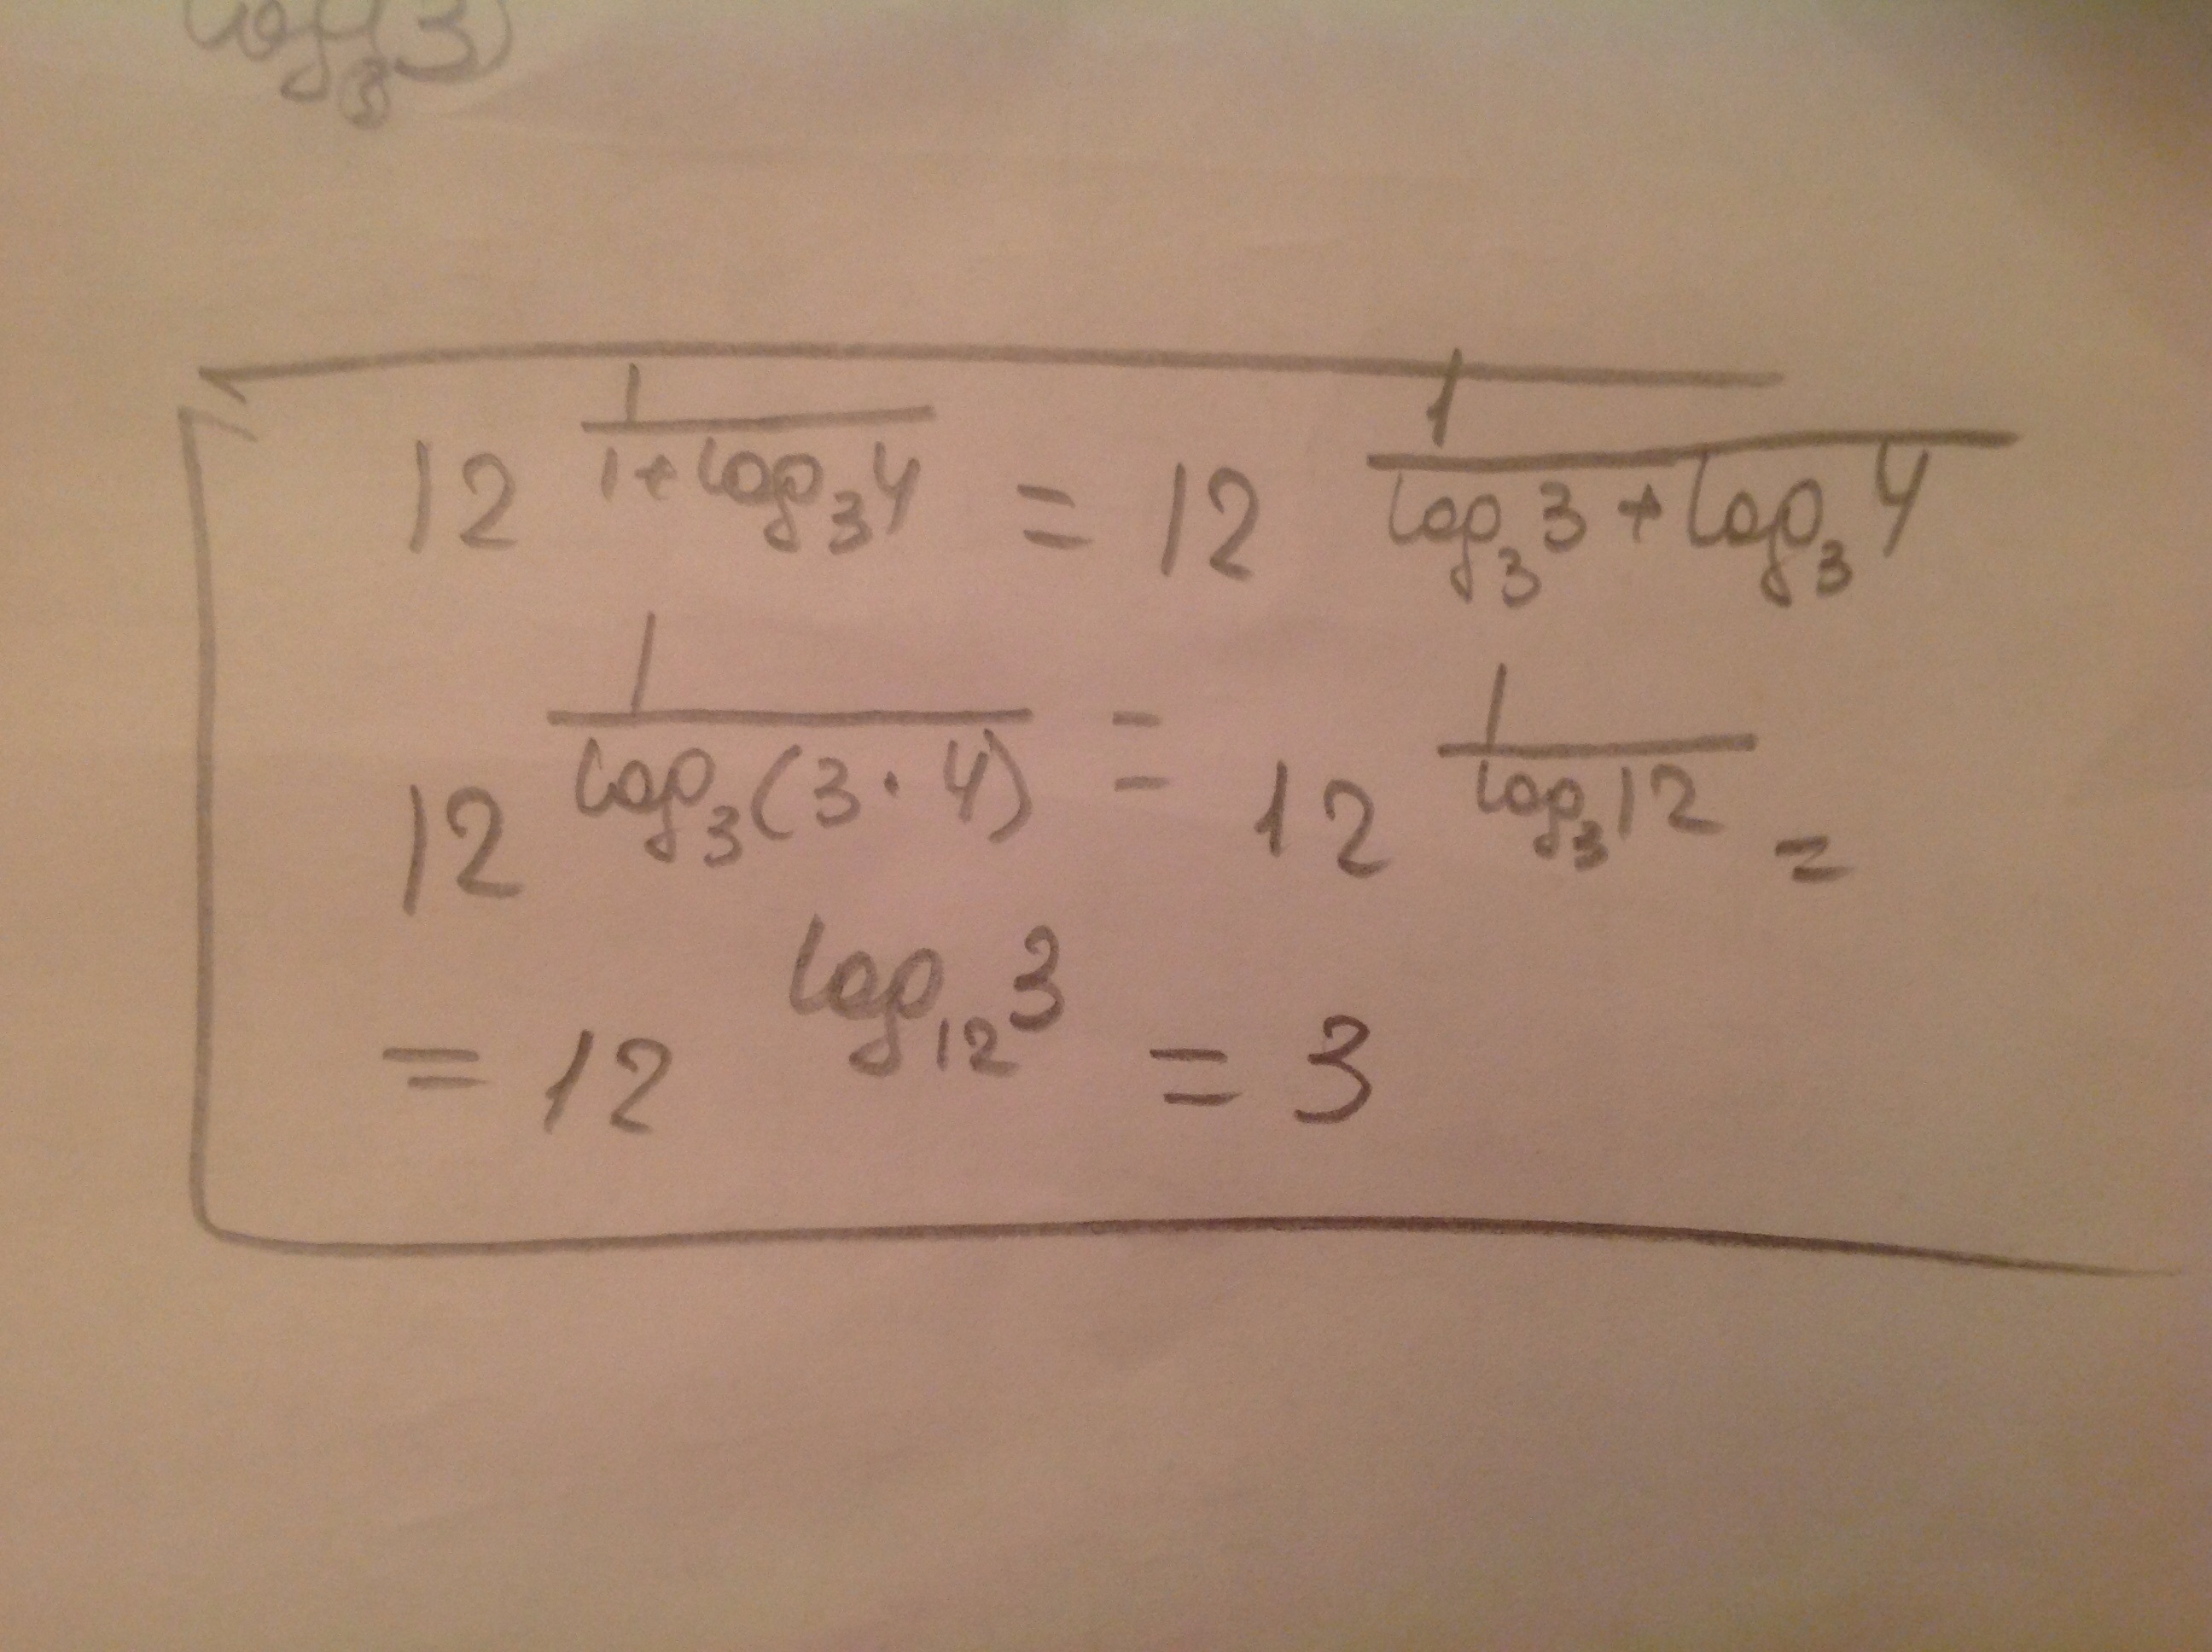 log₃3)
12^(1/(1+log₃4)) = 12^(1/(log₃3+log₃4))
12^(1/(log₃(3·4))) = 12^(1/(log₃12)) =
= 12^(log₁₂3) = 3